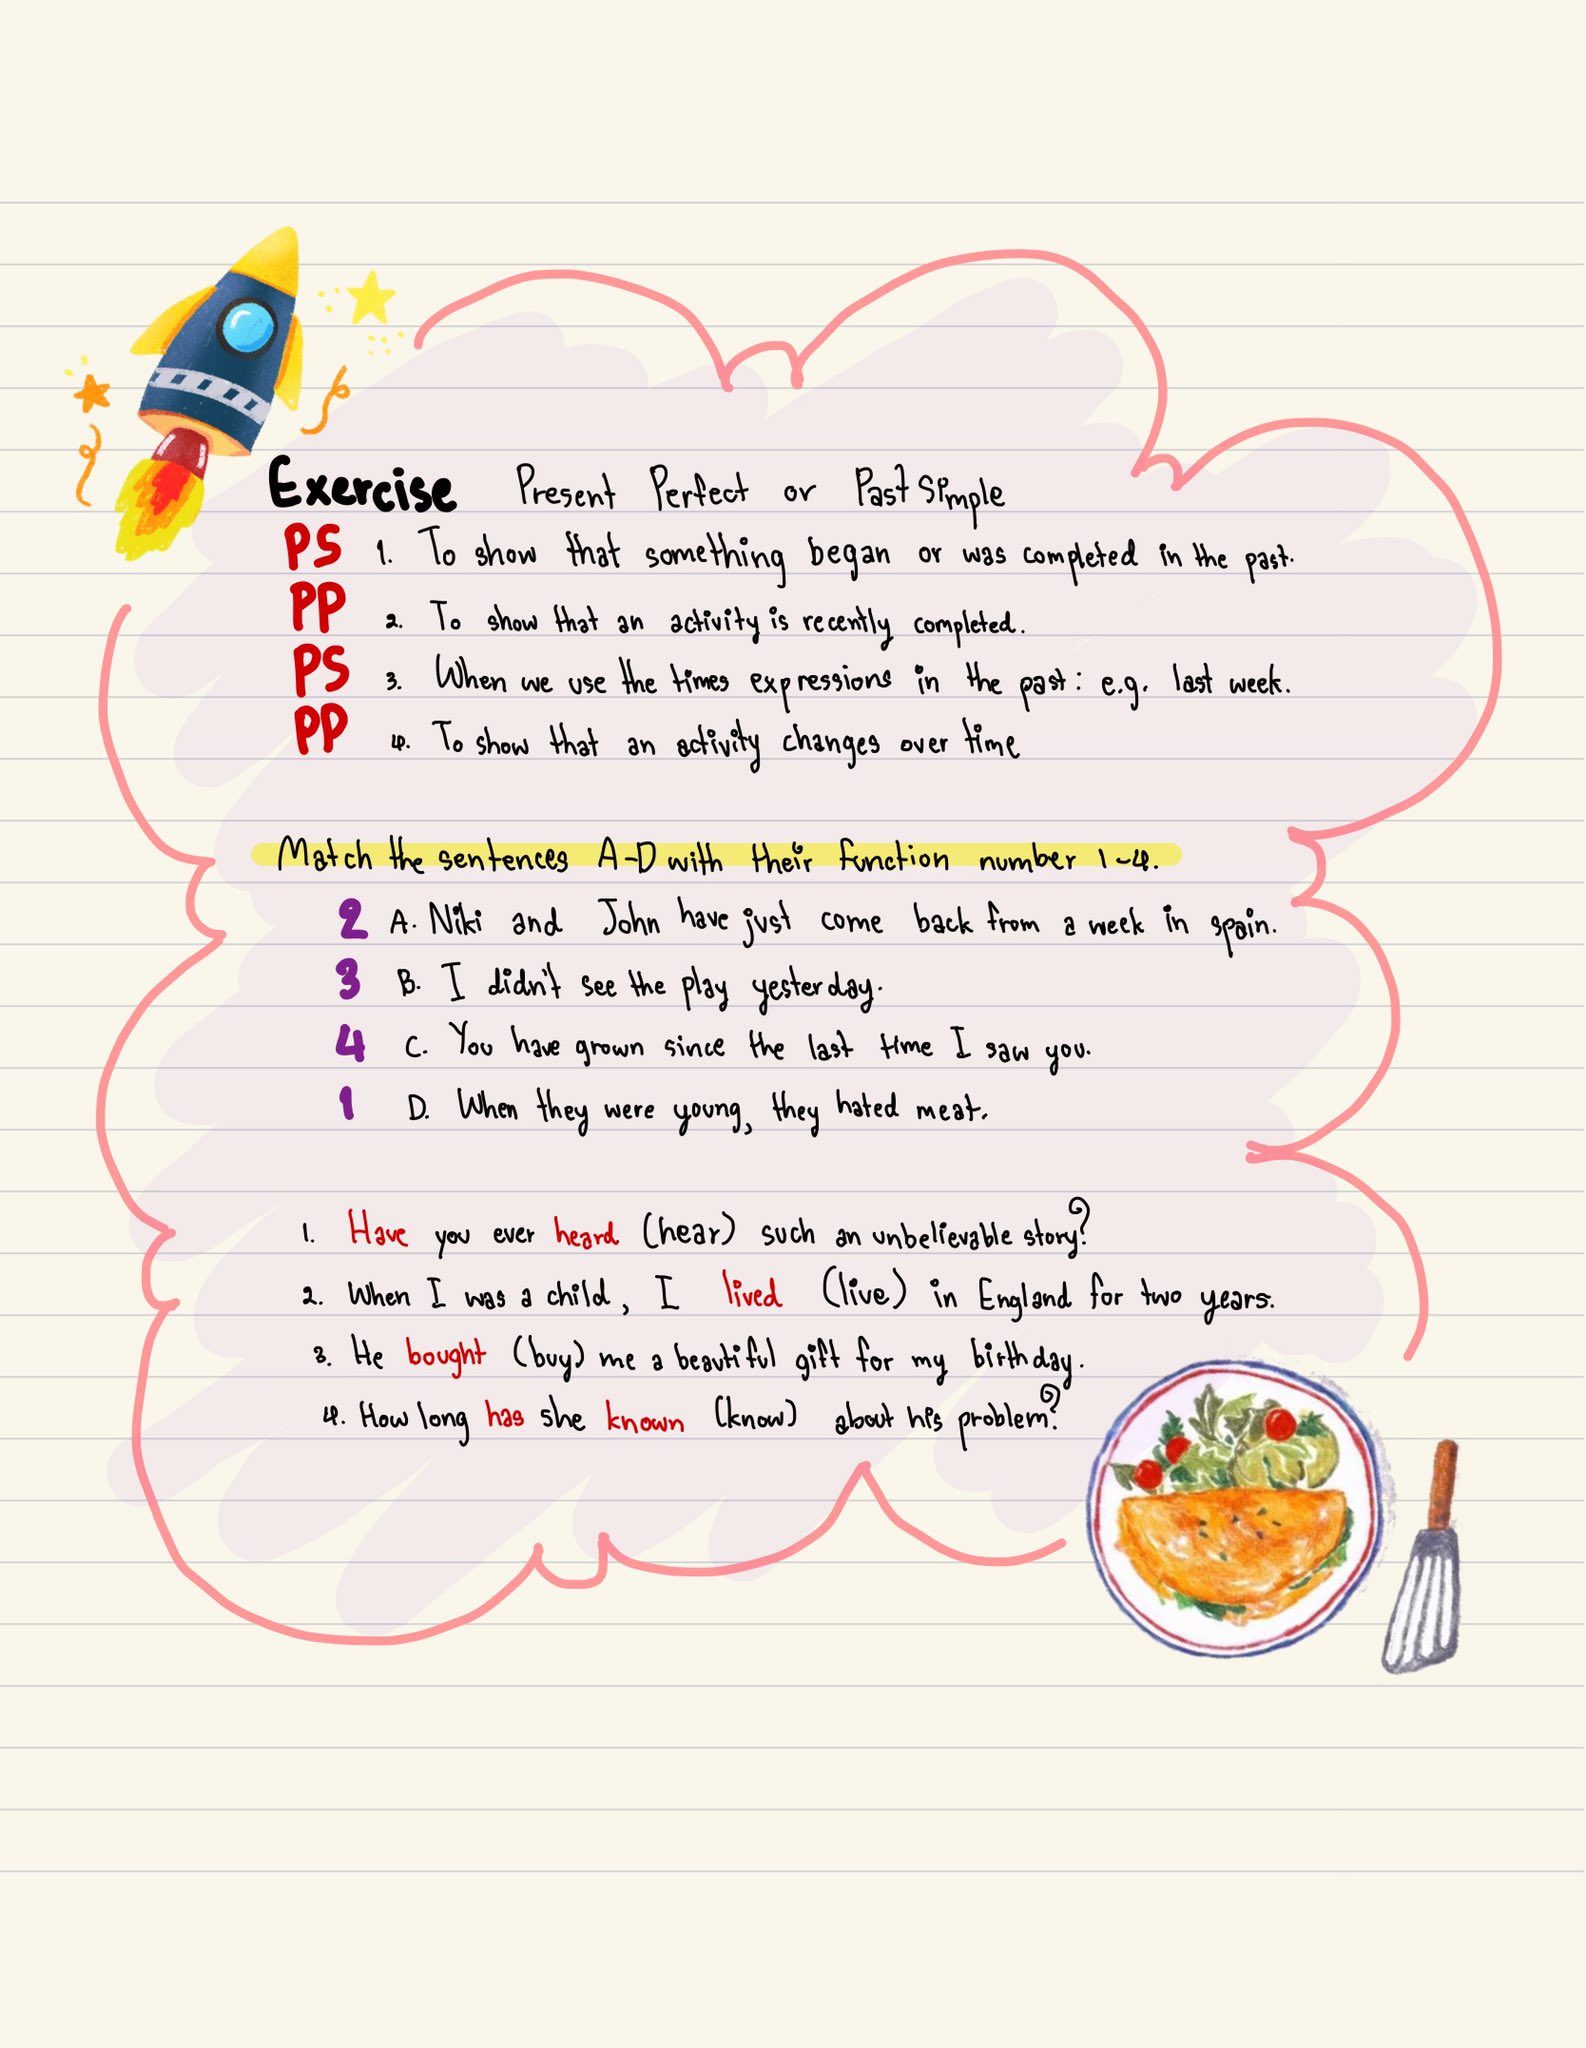 Exercise Present Perfect or Past Simple
PS 1. To show that something began or was completed in the past.
PP 2. To show that an activity is recently completed.
PS 3. When we use the times expressions in the past: e.g. last week.
PP 4. To show that an activity changes over time
Match the sentences A-D with their function number 1-4.
2 A. Niki and John have just come back from a week in spain.
3 B. I didn't see the play yesterday.
4 C. You have grown since the last time I saw you.
1 D. When they were young, they hated meat.
1. Have you ever heard (hear) such an unbelievable story?
2. When I was a child, I lived (live) in England for two years.
3. He bought (buy) me a beautiful gift for my birthday.
4. How long has she known (know) about his problem?